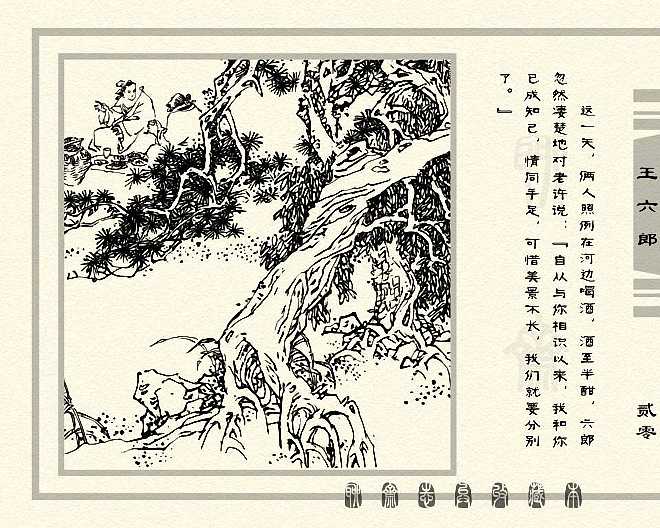 王六郎
贰零
这一天，俩人照例在河边喝酒，酒至半酣，六郎
忽然凄楚地对老许说：『自从与你相识以来，我和你
已成知己，情同手足，可惜美景不长，我们就要分别
了。』
聊齋志異收藏本